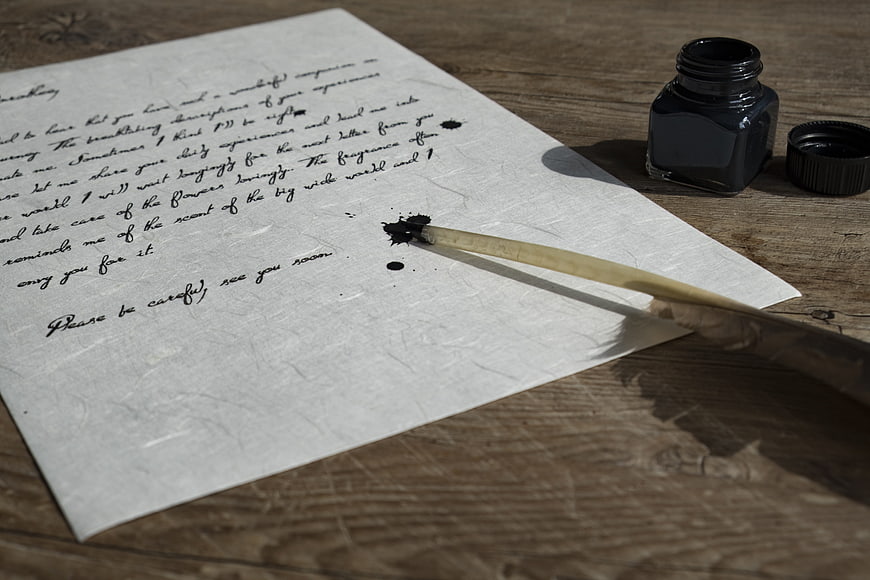 to hear that you have such a wonderful companion on
The breathtaking descriptions of your experiences
me. Sometimes I think I'll be right
let me share your daily experiences and lead me into
world I will wait longingly for the next letter from you
and take care of the flowers lovingly. The fragrance often
reminds me of the scent of the big wide world and I
envy you for it.
Pease be careful, see you soon